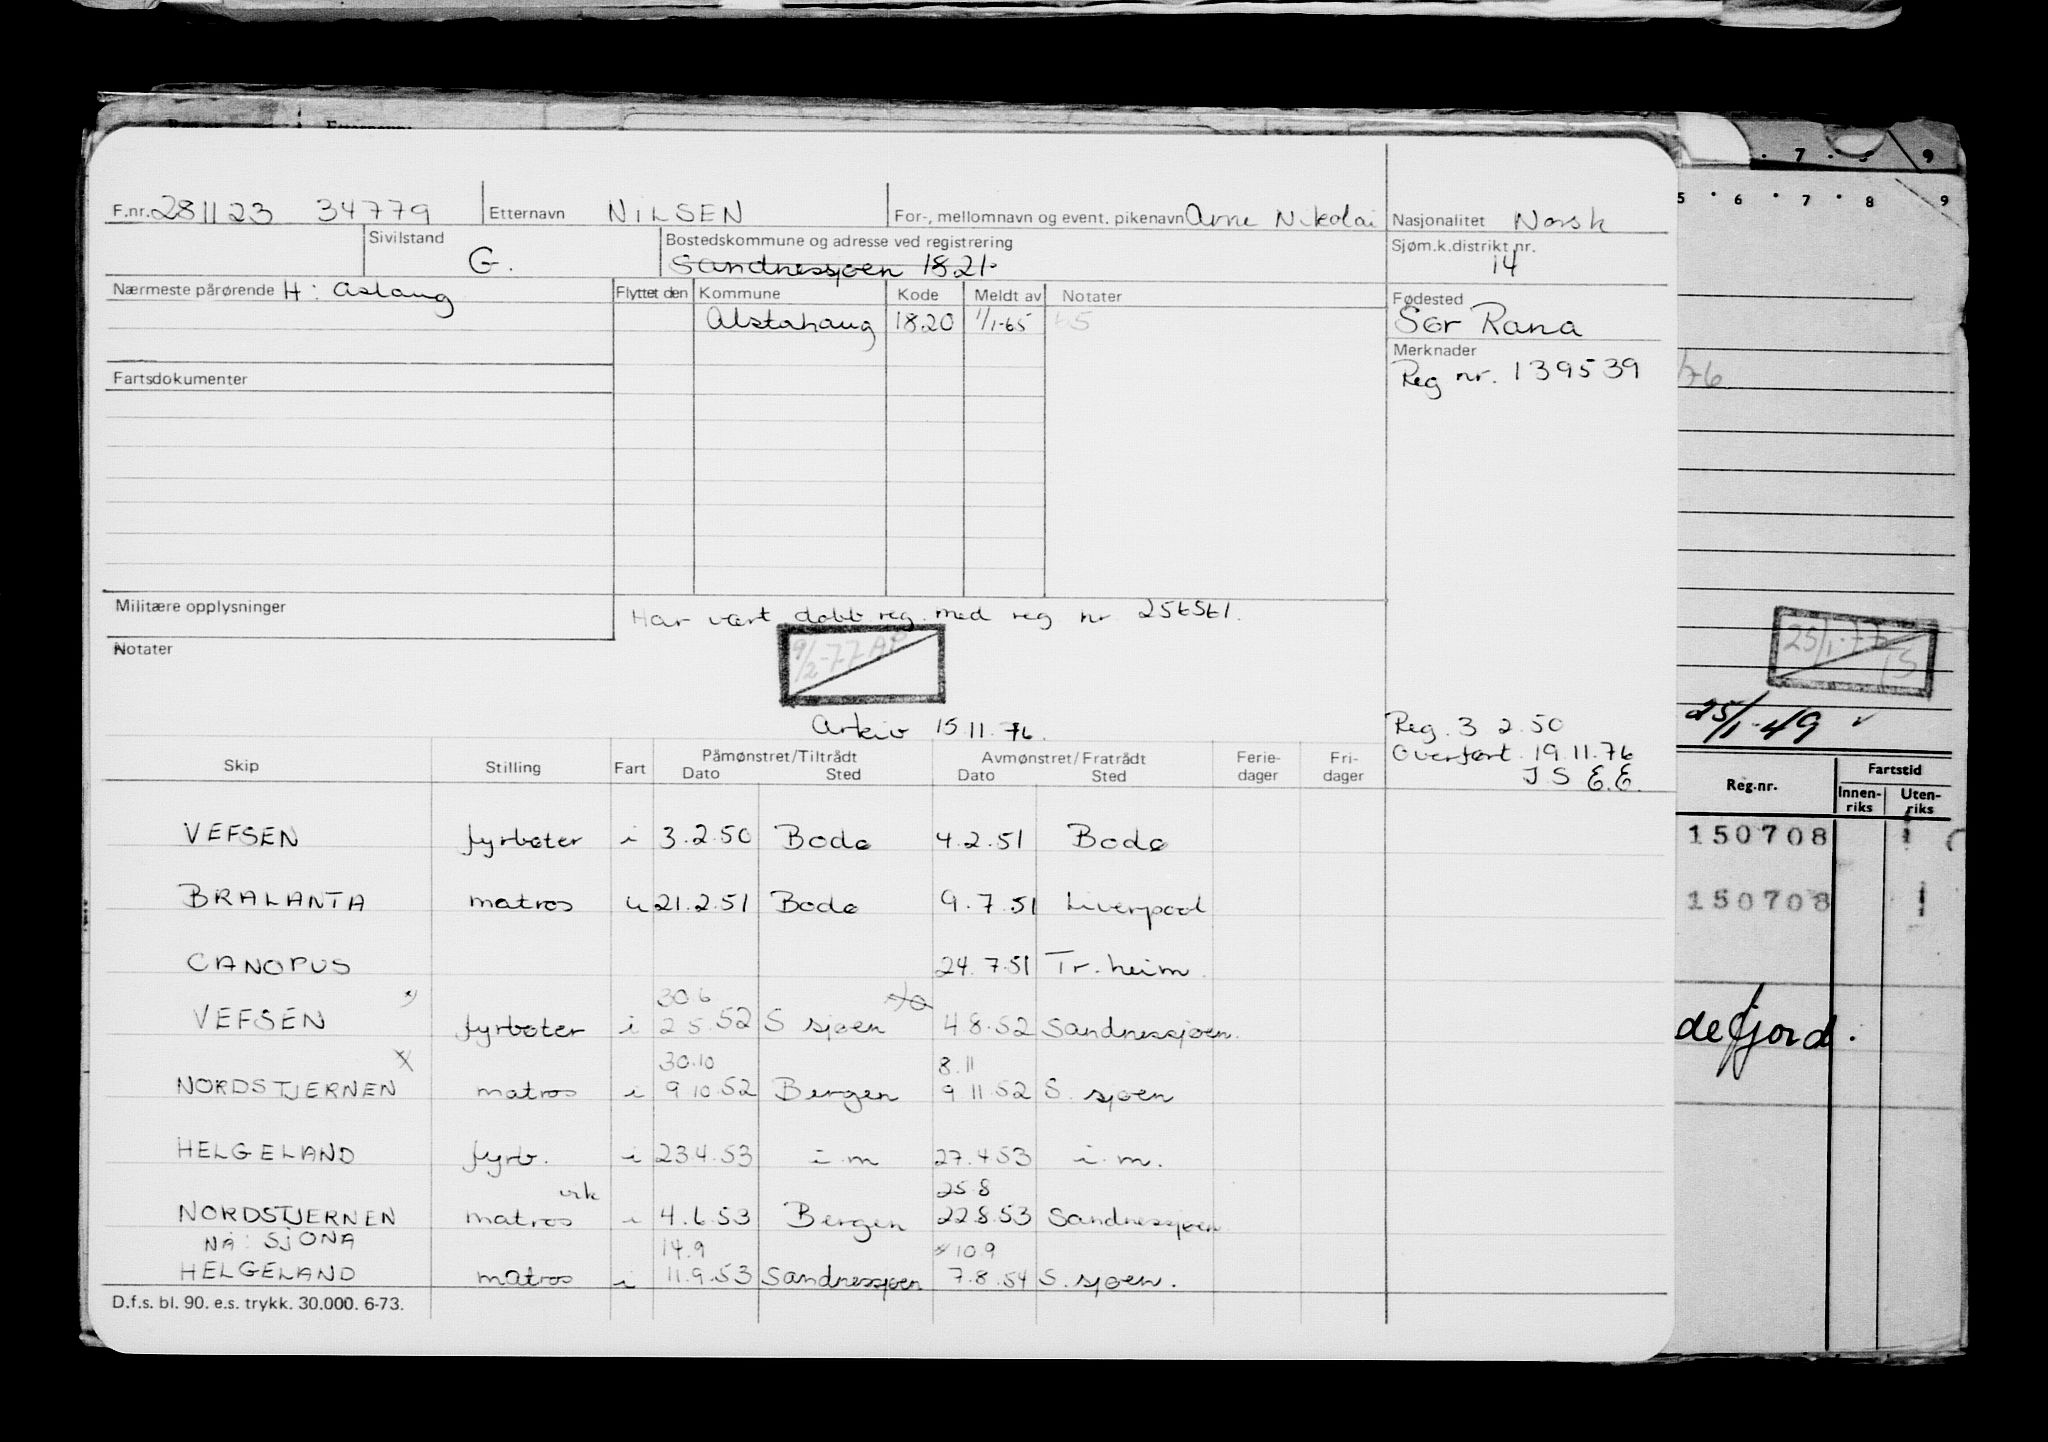 F.nr. 281123 34779 Etternavn NILSEN For-, mellomnavn og event. pikenavn Arne Nikolai Nasjonalitet Norsk
Sivilstand G. Bostedskommune og adresse ved registrering Sjøm.k.distrikt nr. 14
Sandnessjøen 1821
Nærmeste pårørende H: Aslaug Flyttet den Kommune Kode Meldt av Notater Fødested
Alstahaug 1820 1/1-65 65 Sør Rana
Merknader
Reg nr. 139539
Fartsdokumenter
Militære opplysninger
Har vært dobb reg. med reg nr 256561.
Notater
9/2-77 AP
Arkiv 15.11.76.
Reg. 3 2.50
Overført 19.11.76
J S E.E.
Skip Stilling Fart Påmønstret/Tiltrådt Dato Sted Avmønstret/Fratrådt Dato Sted Ferie-dager Fri-dager
VEFSEN fyrbøter i 3.2.50 Bodø 4.2.51 Bodø
BRALANTA matros u 21.2.51 Bodø 9.7.51 Liverpool
CANOPUS 24.7.51 Tr.heim
30.6
VEFSEN fyrbøter i 25.52 S sjøen 4.8.52 Sandnessjøen.
30.10 8.11
NORDSTJERNEN matros i 9 10.52 Bergen 9 11.52 S. sjøen
HELGELAND fyrb. i 23.4.53 i.m 27.4.53 i.m.
25.8
NORDSTJERNEN matros i 4.6.53 Bergen 22.8.53 Sandnessjøen
NÅ: SJONA 14.9 10.9
HELGELAND matros i 11.9.53 Sandnessjøen 7.8.54 S. sjøen.
D.f.s. bl. 90. e.s. trykk. 30.000. 6-73.
7 9
5 6 7 8 9
25/1-77
25/1-49
Reg.nr. Fartstid
Innen-riks Uten-riks
150708
150708
defjord.